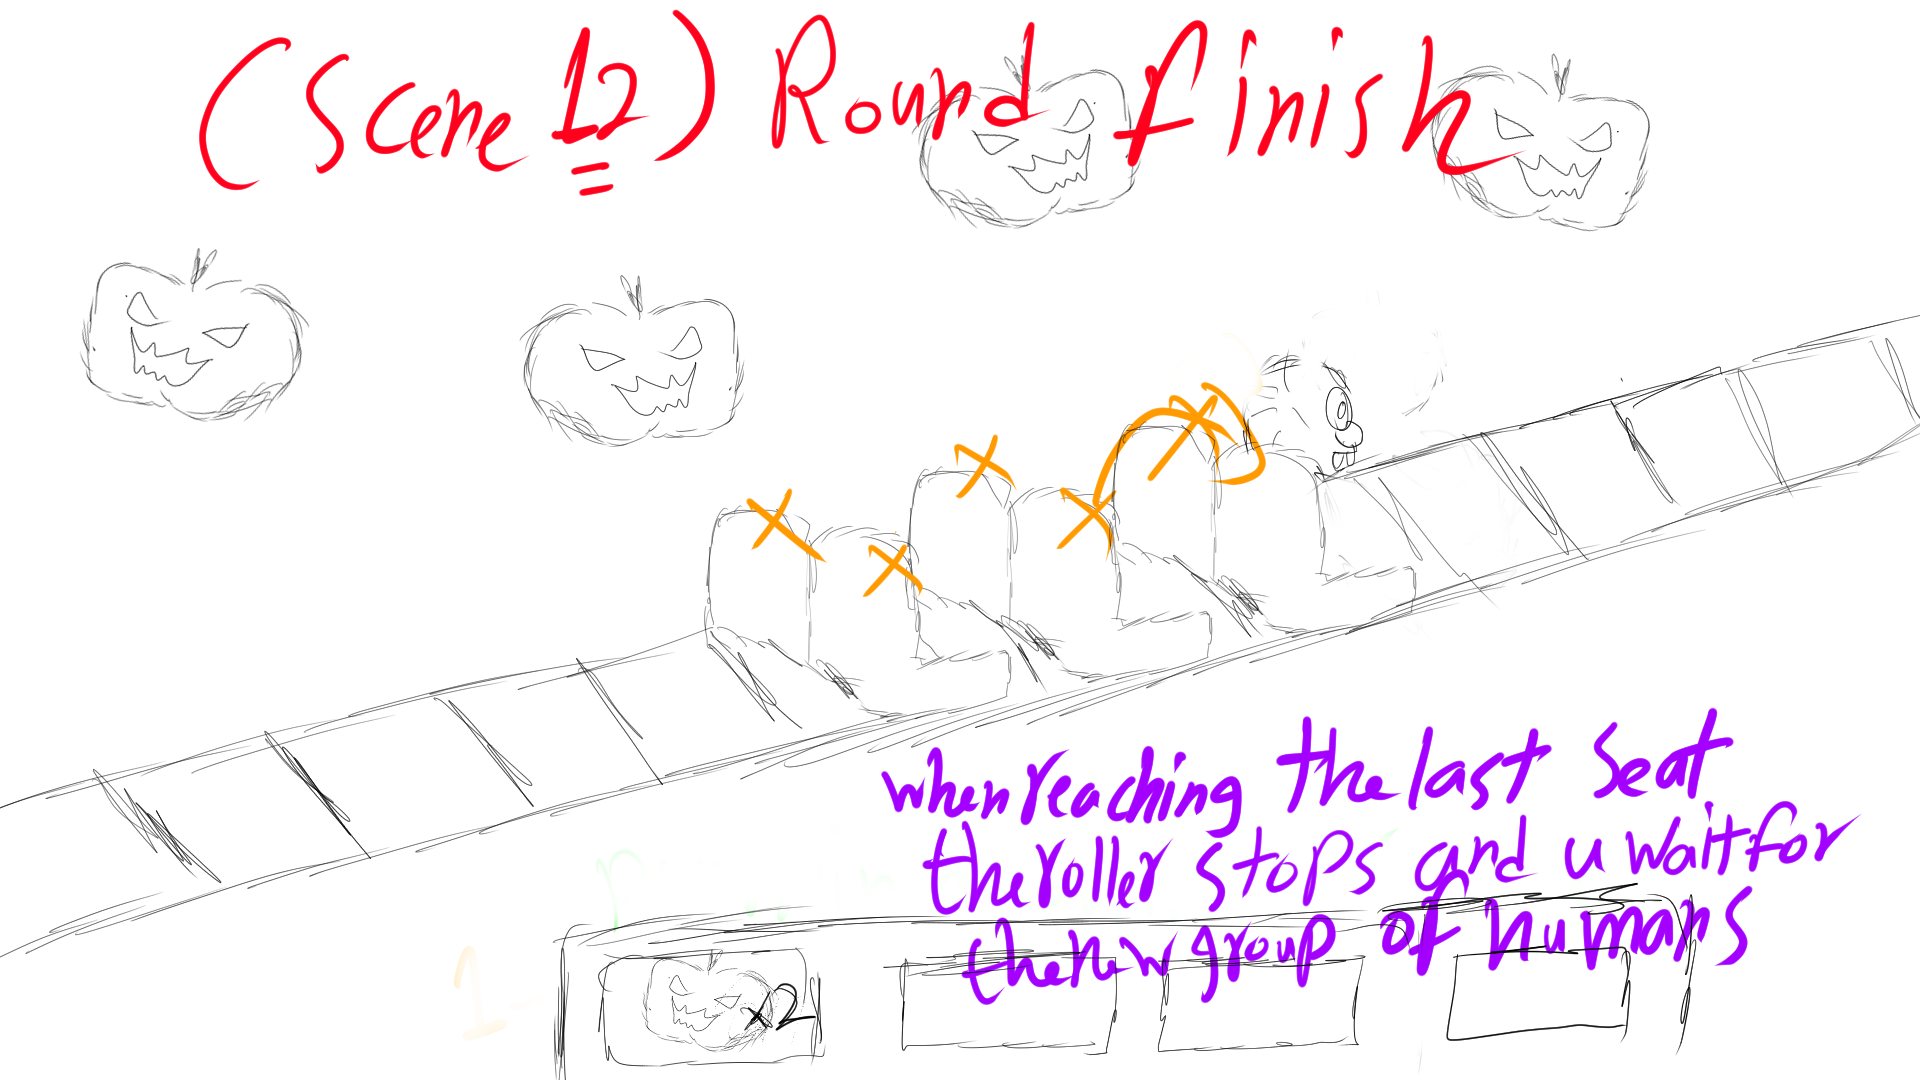 (Scene 12) Round finish
when reaching the last seat
the roller stops and u wait for
the new group of humans
x2